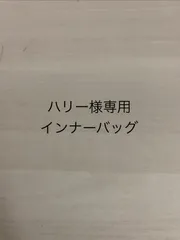 ハリー様専用
インナーバッグ